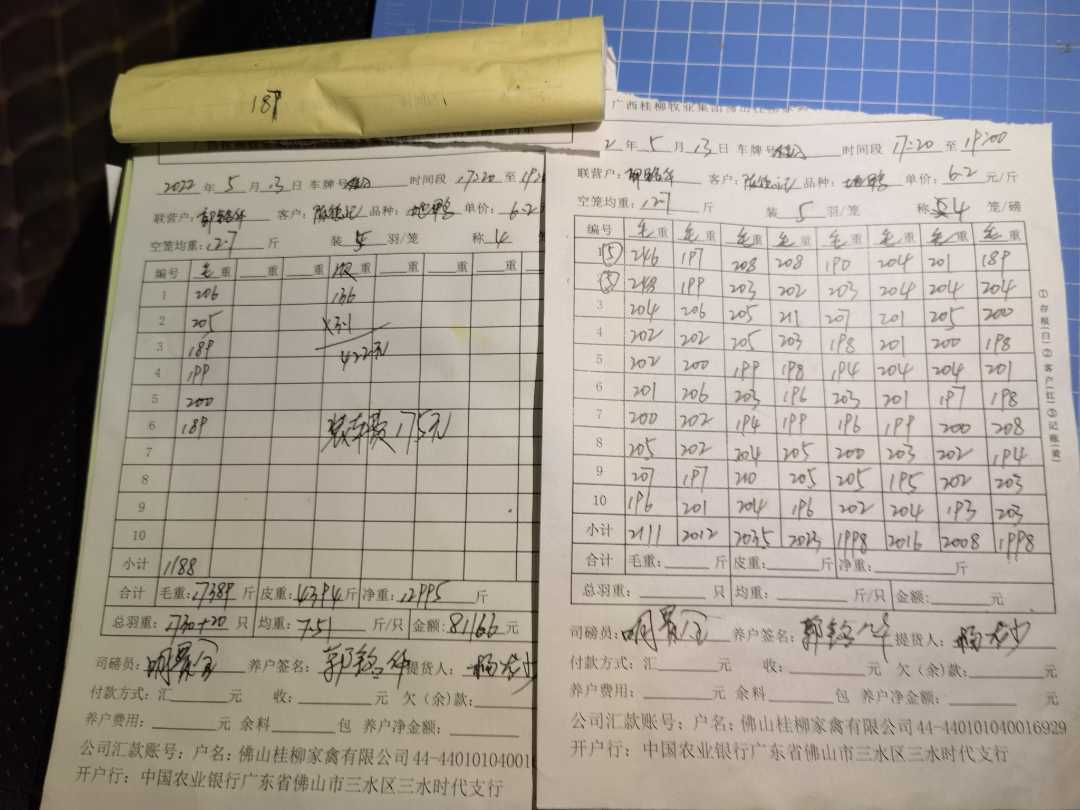 189
2022 年 5 月 13 日 车牌号 时间段 17:20 至
联营户: 客户: 陈德记 品种: 单价: 6.2
空笼均重: 12.7 斤 装 5 羽/笼 称 4
编号 毛重 重 重 重 重 重 重
1 206 136
2 205 ×3.1
3 189 422元
4 199
5 200
6 189 装车费175元
7
8
9
10
小计 1188
合计 毛重: 17389 斤 皮重: 4394 斤 净重: 12995 斤
总羽重: 1730+20 只 均重: 7.51 斤/只 金额: 81166 元
司磅员: 养户签名: 郭 华 提货人: 杨
付款方式: 汇 元 收: 元 欠(余)款:
养户费用: 元 余料 包 养户净金额:
公司汇款账号: 户名: 佛山桂柳家禽有限公司 44-44010104001
开户行: 中国农业银行广东省佛山市三水区三水时代支行
广西桂柳牧业集团佛山桂柳家禽
2 年 5 月 13 日 车牌号 时间段 17:20 至 19:00
联营户: 客户: 陈德记 品种: 单价: 6.2 元/斤
空笼均重: 12.7 斤 装 5 羽/笼 称 4 笼/磅
编号 毛重 毛重 毛重 毛重 毛重 毛重 毛重 毛重
1 ⑤ 246 197 208 208 190 204 201 189
248 199 203 202 203 204 204 204
3 204 206 205 211 207 201 205 200
4 202 202 205 203 198 201 200 198
5 202 200 199 198 194 204 204 201
6 201 206 203 196 203 201 197 198
7 200 202 194 199 196 199 200 208
8 205 202 204 205 200 203 202 194
9 207 197 210 205 205 195 202 203
10 196 201 204 196 202 204 193 203
小计 2111 2012 2035 2023 1998 2016 2008 1998
合计 毛重: 斤 皮重: 斤 净重: 斤
总羽重: 只 均重: 斤/只 金额: 元
司磅员: 养户签名: 郭 华 提货人: 杨
付款方式: 汇 元 收: 元 欠(余)款: 元
养户费用: 元 余料 包 养户净金额: 元
公司汇款账号: 户名: 佛山桂柳家禽有限公司 44-440101040016929
开户行: 中国农业银行广东省佛山市三水区三水时代支行
①存根(白)②客户(红)③记账(黄)